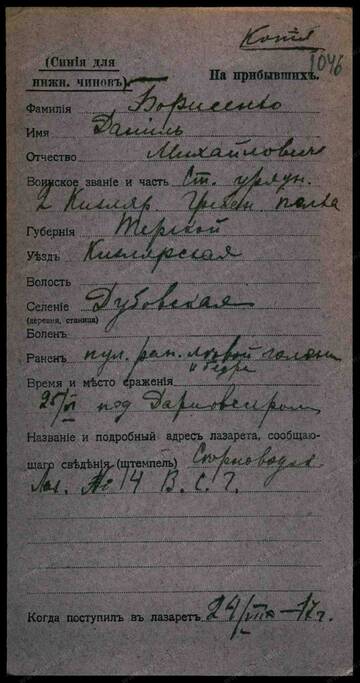 Копія
1046
(Синія для
нижн. чиновъ).
На прибывшихъ.
Фамилія Борисенко
Имя Даніилъ
Отчество Михайловичъ
Воинское званіе и часть Ст. урядн.
2 Кизляр. Гребен. полка
Губернія Терской
Уѣздъ Кизлярская
Волость
Селеніе Дубовская
(деревня, станица)
Боленъ
Раненъ пул. ран. лѣвой голени
и бедра
Время и мѣсто сраженія
25/VI под
Названіе и подробный адресъ лазарета, сообщаю-
щаго свѣдѣнія (штемпель)
Лаз. № 14 В. С. Г.
Когда поступилъ въ лазаретъ 24/VII—17 г.